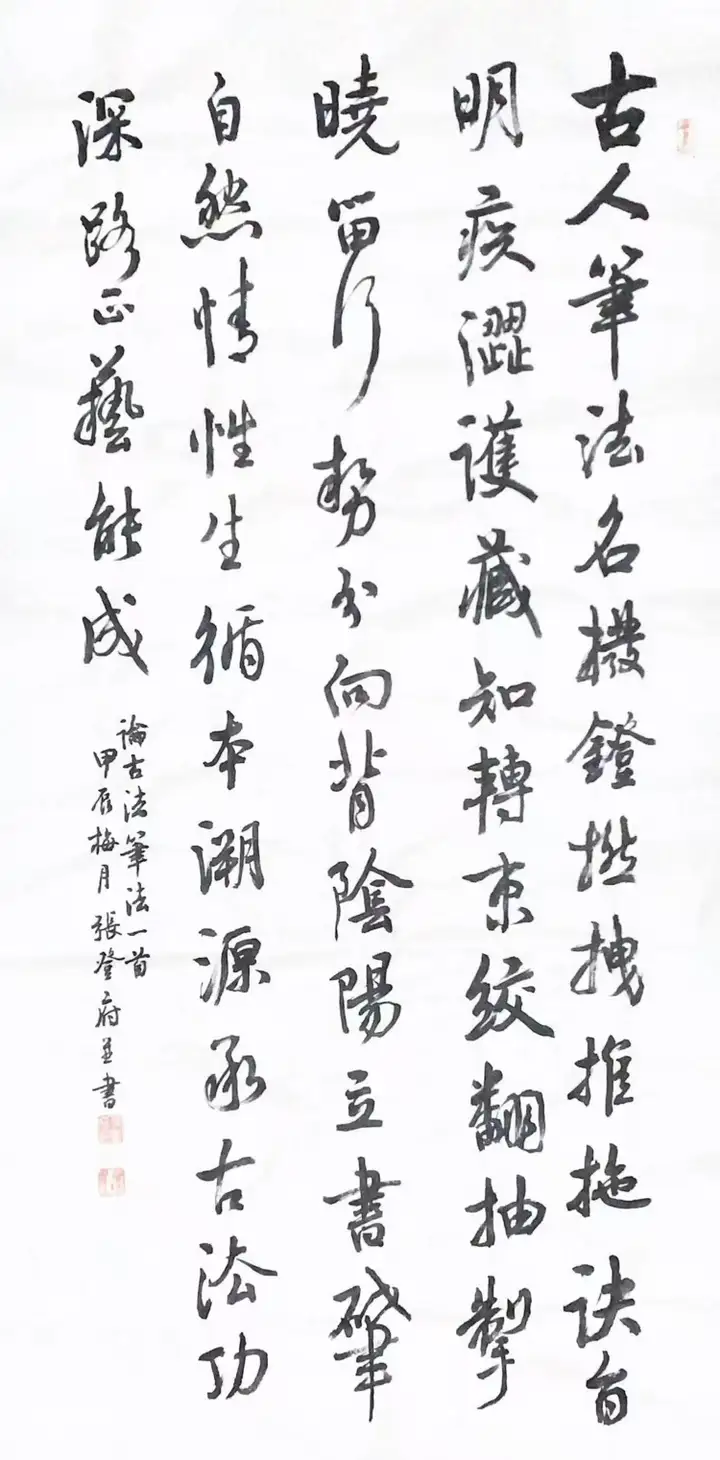 古人筆法名撥鐙撚拽推拖訣自
明疾澀護藏知轉束絞翻抽掣
曉留行勢分向背陰陽立書肇
自然情性生循本溯源承古法功
深路正藝能成
論古法筆法一首
甲辰梅月張登府並書